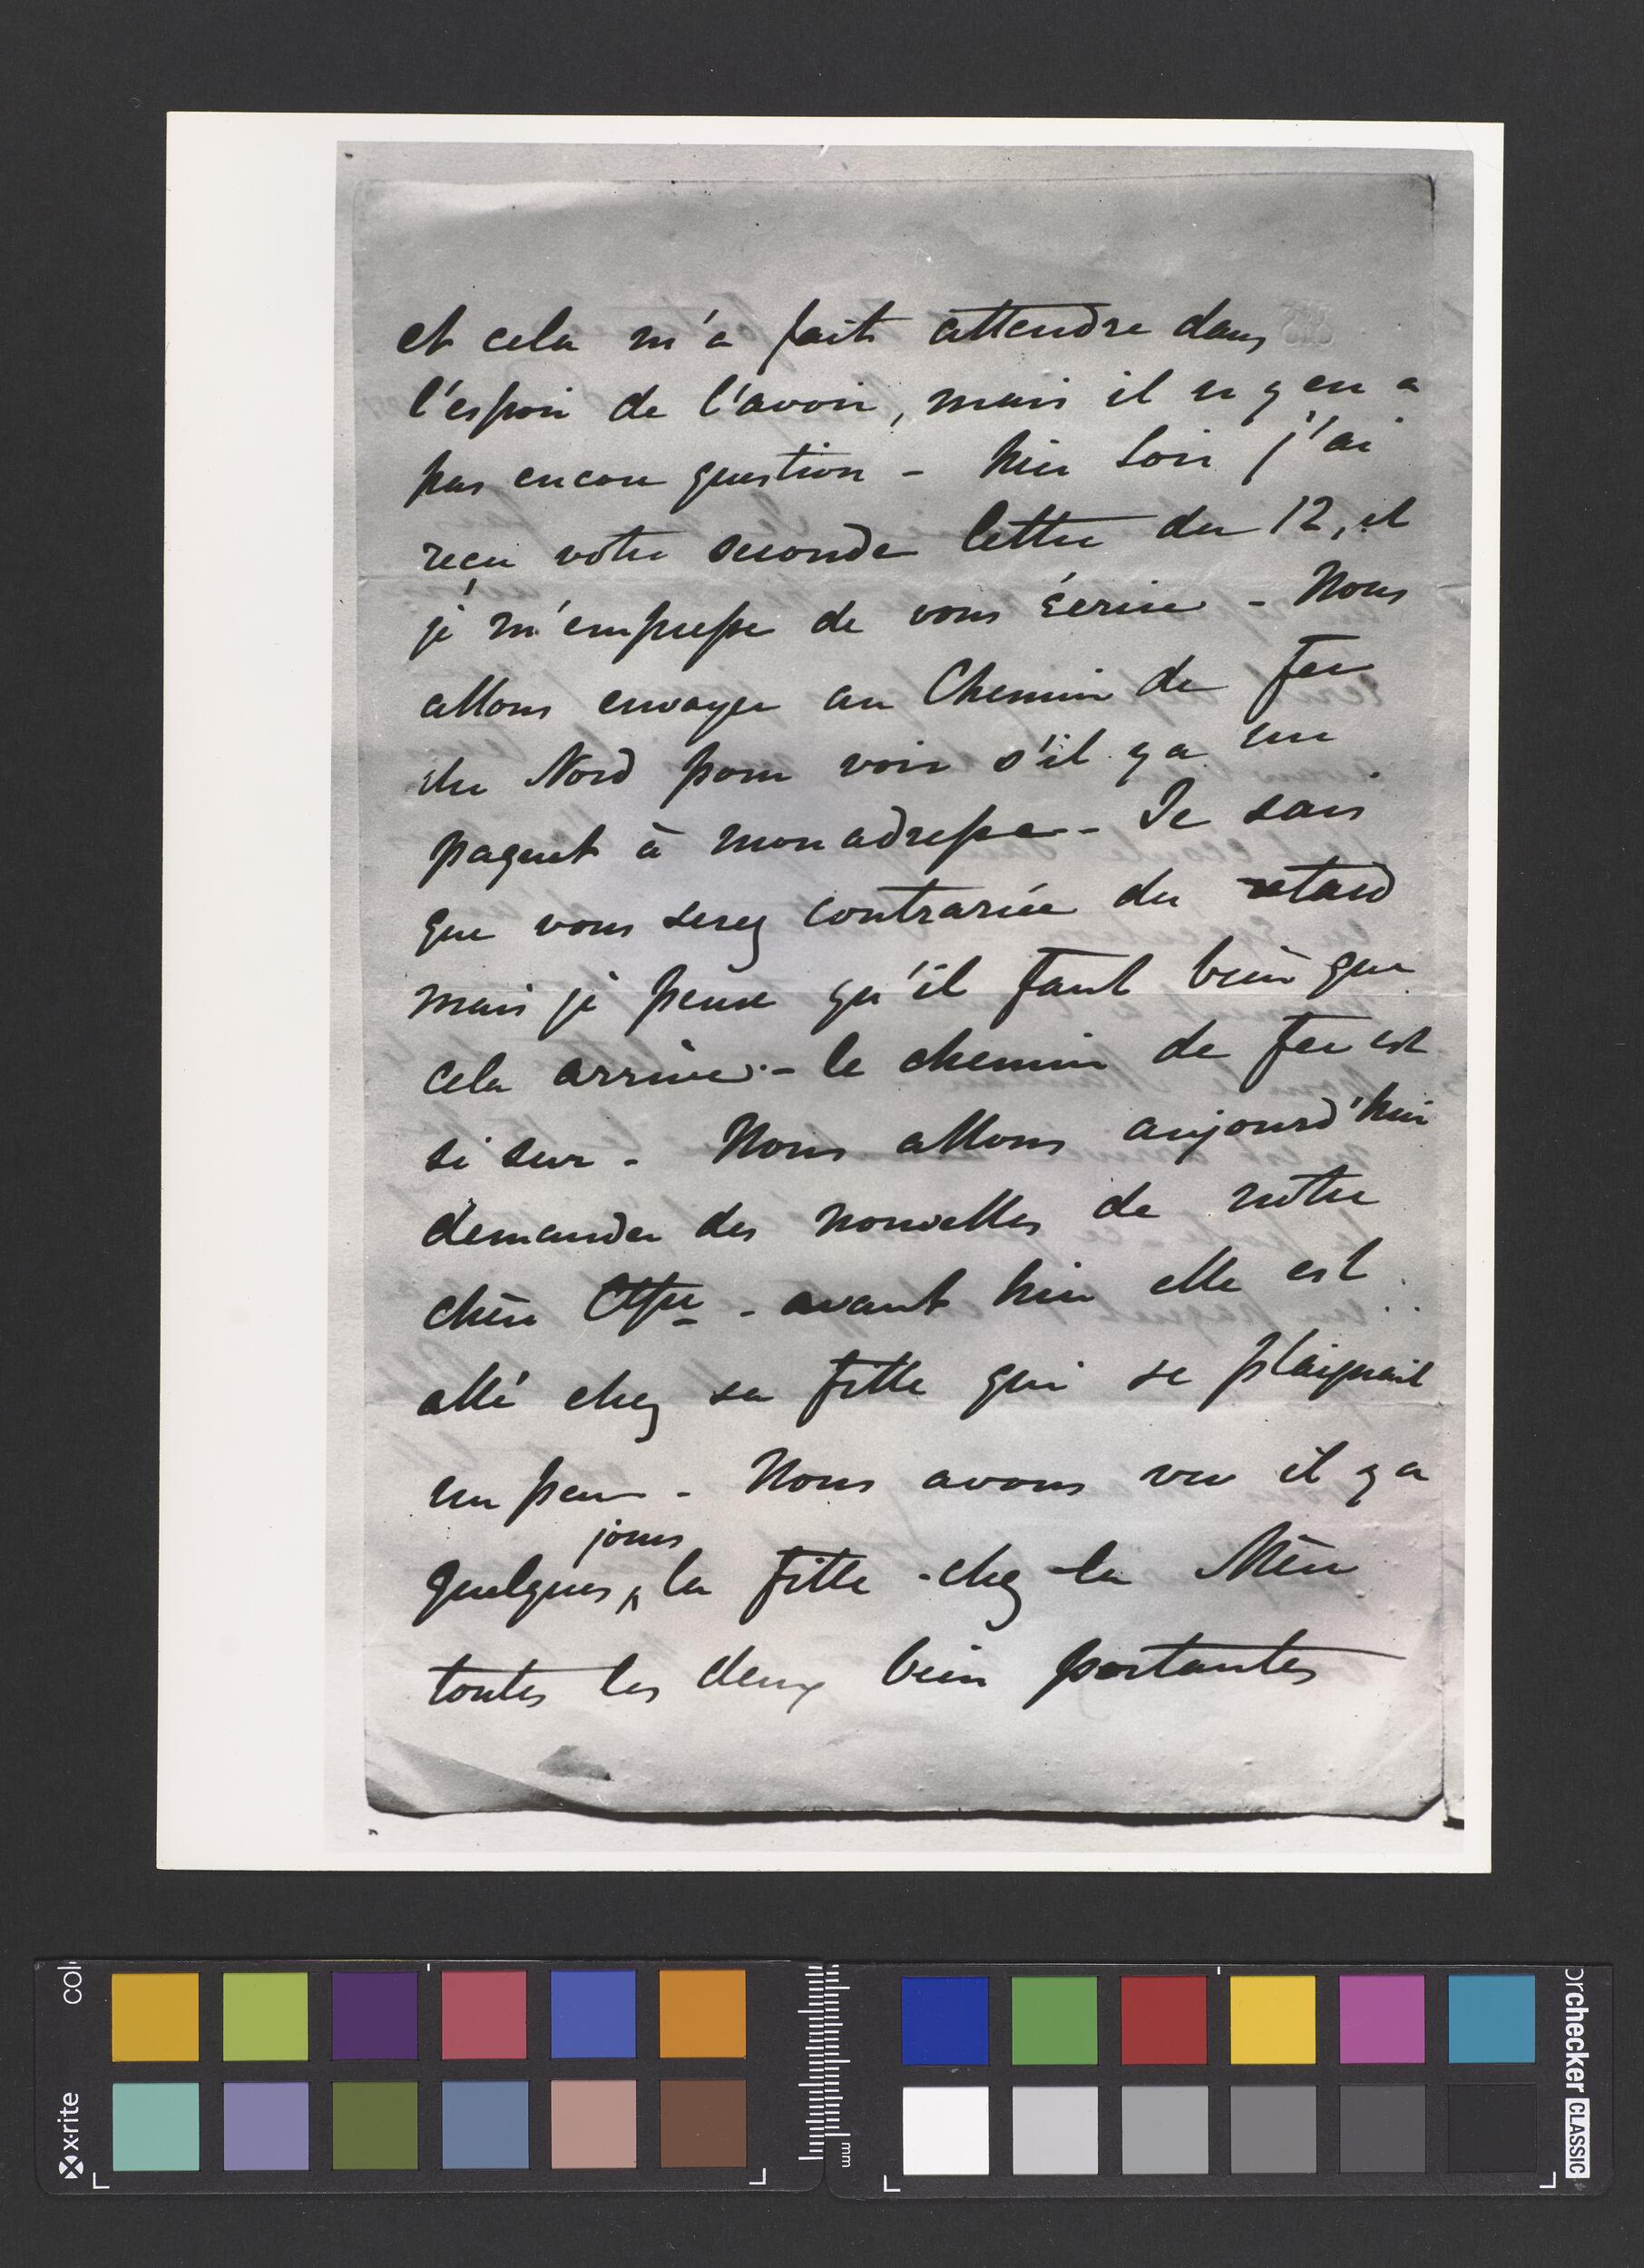 et cela m'a fait attendre dans
l'espoir de l'avoir, mais il n'y en a
pas encore question - hier soir j'ai
reçu votre seconde lettre du 12, et
je m'empresse de vous écrire - Nous
allons envoyer au Chemin de fer
du Nord pour voir s'il y a un
paquet à mon adresse - Je sais
que vous serez contrariée du retard
mais je pense qu'il faut bien que
cela arrive. - le chemin de fer est
si sur - Nous allons aujourd'hui
demander des nouvelles de notre
chère - avant hier elle est
allé chez sa fille qui se plaignait
un peu - Nous avons vu il y a
jours
quelques la fille chez la Mère
toutes les deux bien portantes
x-rite
col
mm
orchecker CLASSIC